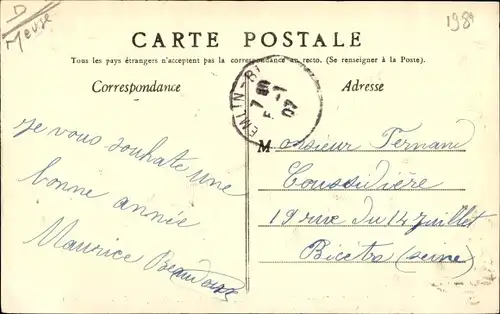 D
Meuse
198
CARTE POSTALE
Tous les pays étrangers n'acceptent pas la correspondance au recto. (Se renseigner à la Poste).
Correspondance
Adresse
EMLIN-BI
7
07
je vous souhate une
bonne année
Maurice
Monsieur Fernand
Coussidière
19 rue du 14 Juillet
Bicetre (seine)